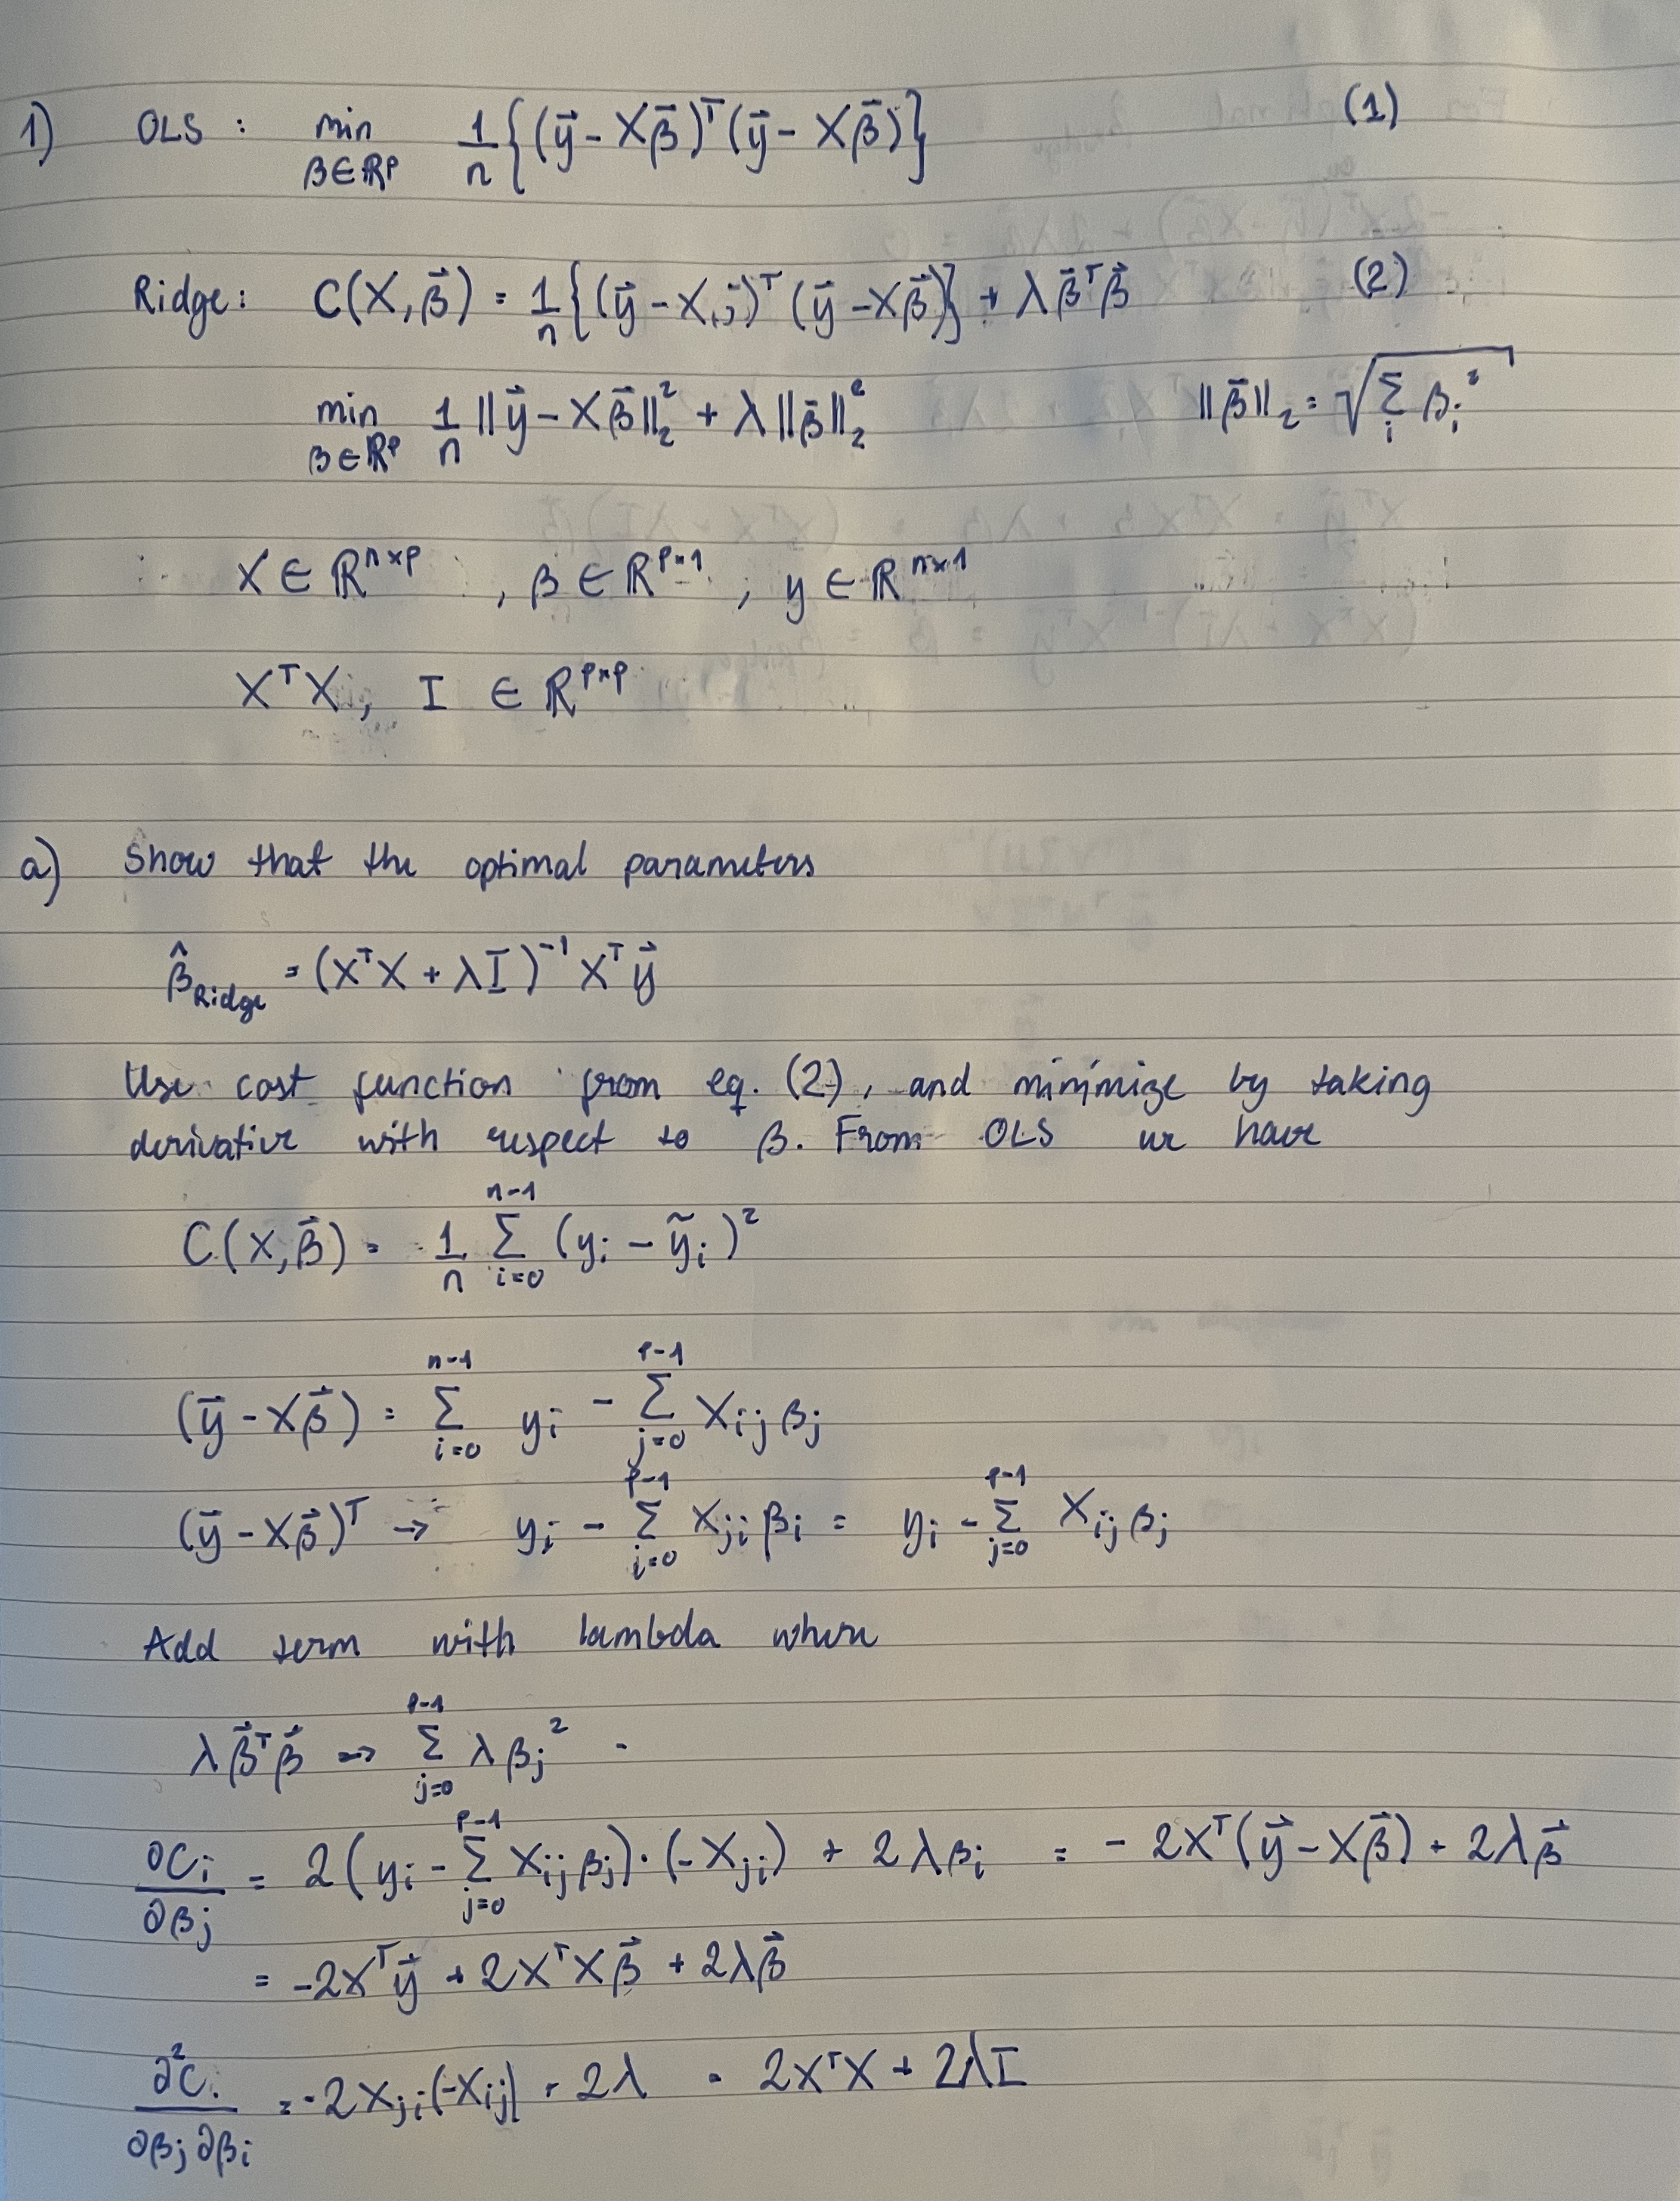 1) OLS : min_{β∈ℝᵖ} 1/n {(y⃗ - Xβ⃗)ᵀ(y⃗ - Xβ⃗)} (1)
Ridge: C(X, β⃗) = 1/n {(y⃗ - Xβ⃗)ᵀ (y⃗ - Xβ⃗)} + λ β⃗ᵀβ⃗ (2)
min_{β∈ℝᵖ} 1/n ‖y⃗ - Xβ⃗‖₂² + λ‖β⃗‖₂² ‖β⃗‖₂ = √(Σ_i β_i²)
X ∈ ℝ^{n×p} , β ∈ ℝ^{p×1} , y ∈ ℝ^{n×1}
XᵀX, I ∈ ℝ^{p×p}
a) Show that the optimal parameters
β̂_Ridge = (XᵀX + λI)⁻¹ Xᵀy⃗
Use cost function from eq. (2), and minimize by taking
derivative with respect to β. From OLS we have
C(X, β⃗) = 1/n Σ_{i=0}^{n-1} (y_i - ỹ_i)²
(y⃗ - Xβ⃗) = Σ_{i=0}^{n-1} y_i - Σ_{j=0}^{p-1} X_{ij} β_j
(y⃗ - Xβ⃗)ᵀ → y_i - Σ_{i=0}^{p-1} X_{ji} β_i = y_i - Σ_{j=0}^{p-1} X_{ij} β_j
Add term with lambda where
λ β⃗ᵀβ⃗ → Σ_{j=0}^{p-1} λ β_j²
∂C_i/∂β_j = 2(y_i - Σ_{j=0}^{p-1} X_{ij} β_j)·(-X_{ji}) + 2λβ_i = -2Xᵀ(y⃗ - Xβ⃗) + 2λβ⃗
= -2Xᵀy⃗ + 2XᵀXβ⃗ + 2λβ⃗
∂²C_i/∂β_j∂β_i = -2X_{ji}(-X_{ij}) + 2λ = 2XᵀX + 2λI